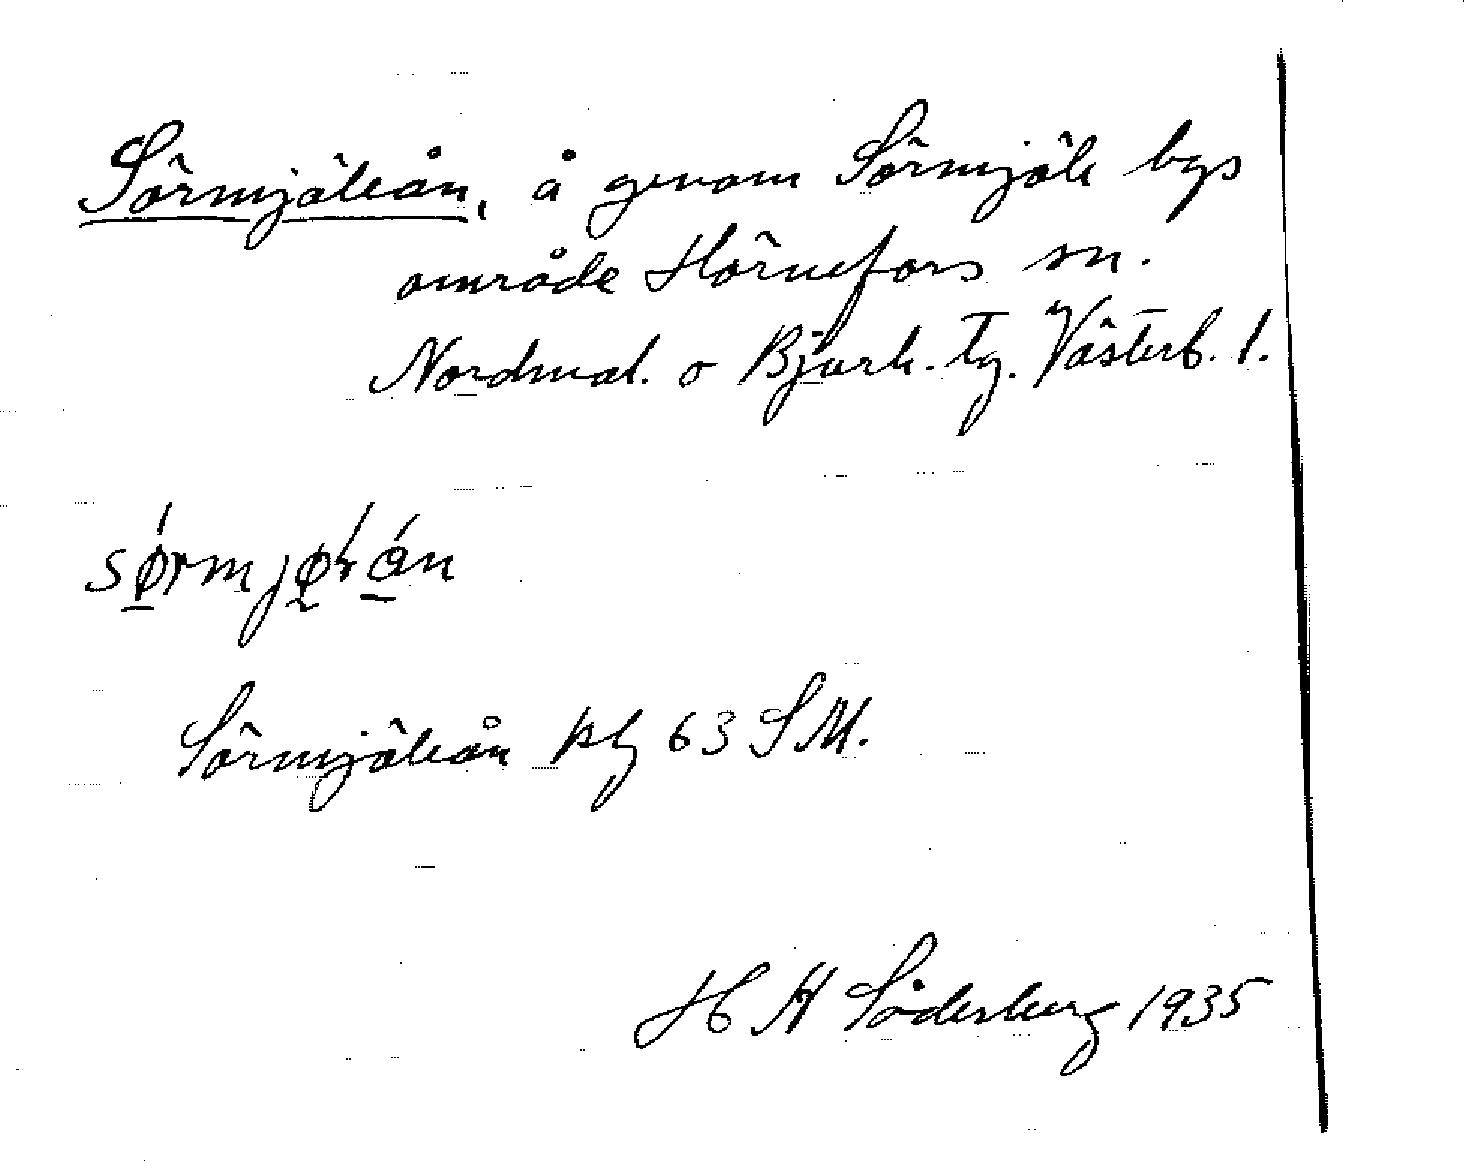 Sörmjöleån, å genom Sörmjöle bys
område Hörnefors sn.
Nordmal. o Bjurh. tg. Västerb. l.
Sörmjöleån kbl 63 SM.
H A Söderberg 1935